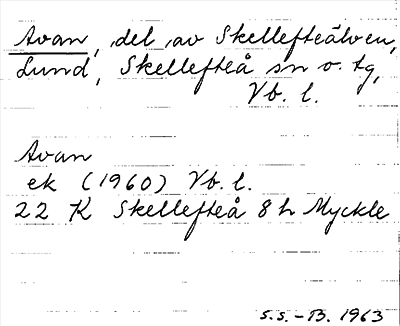 Avan, del av Skellefteälven,
Lund, Skellefteå sn o. tg,
Vb. l.
Avan
ek (1960) Vb. l.
22 K Skellefteå 8 h Myckle
S.S.-B. 1963